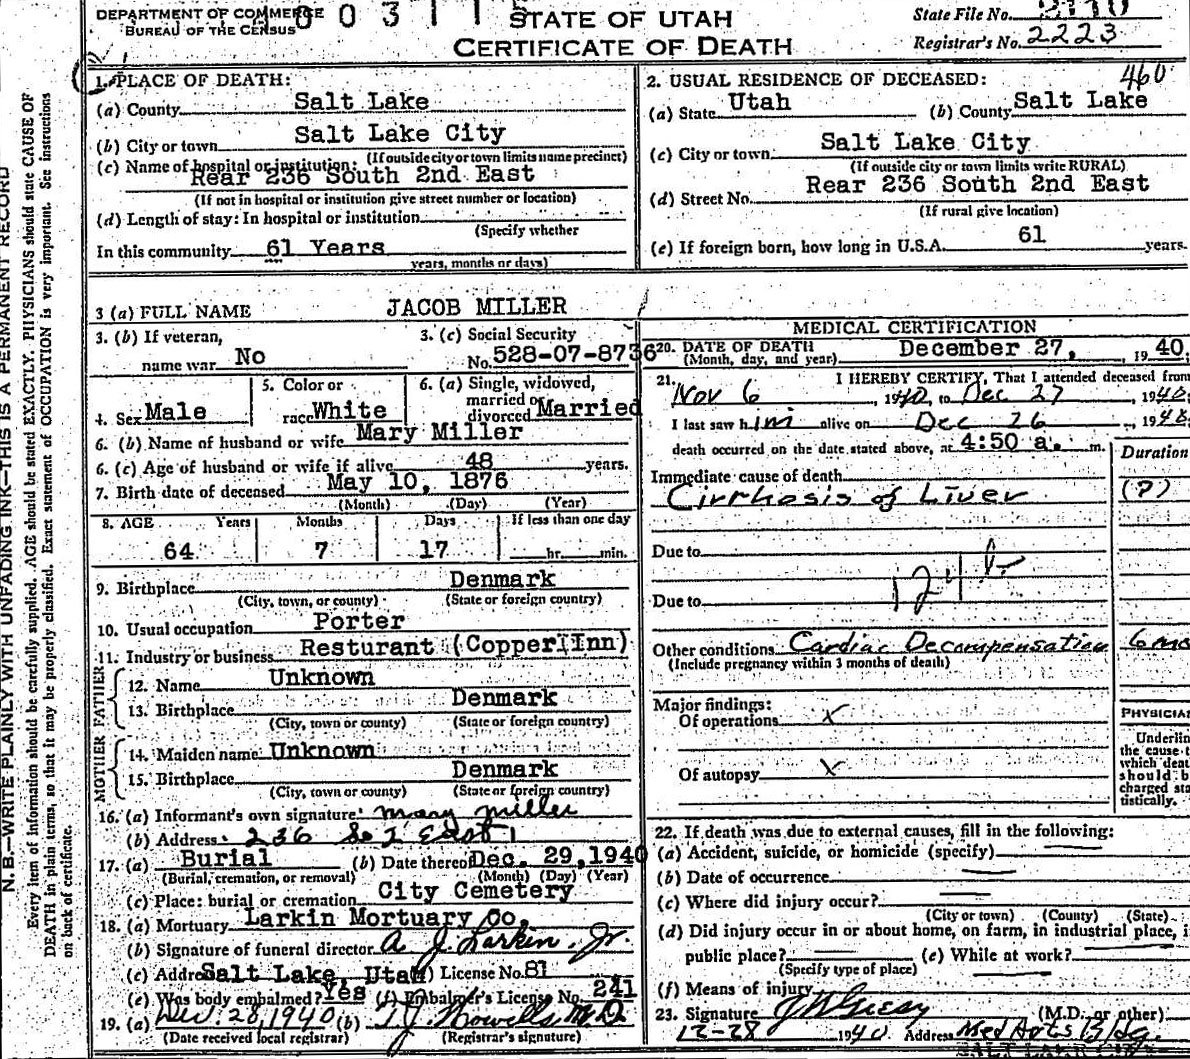 DEPARTMENT OF COMMERCE
BUREAU OF THE CENSUS
STATE OF UTAH
CERTIFICATE OF DEATH
State File No.
Registrar's No. 2223
460
N. B.—WRITE PLAINLY WITH UNFADING INK—THIS IS A PERMANENT RECORD
Every item of information should be carefully supplied. AGE should be stated EXACTLY. PHYSICIANS should state CAUSE OF
DEATH in plain terms, so that it may be properly classified. Exact statement of OCCUPATION is very important. See instructions
on back of certificate.
1. PLACE OF DEATH:
(a) County Salt Lake
(b) City or town Salt Lake City
(If outside city or town limits name precinct)
(c) Name of hospital or institution:
Rear 236 South 2nd East
(If not in hospital or institution give street number or location)
(d) Length of stay: In hospital or institution
(Specify whether
In this community 61 Years
years, months or days)
2. USUAL RESIDENCE OF DECEASED:
(a) State Utah (b) County Salt Lake
(c) City or town Salt Lake City
(If outside city or town limits write RURAL)
(d) Street No. Rear 236 South 2nd East
(If rural give location)
(e) If foreign born, how long in U.S.A. 61 years.
3 (a) FULL NAME JACOB MILLER
3. (b) If veteran,
name war No
3. (c) Social Security
No. 528-07-8736
4. Sex Male
5. Color or
race White
6. (a) Single, widowed,
married or
divorced Married
6. (b) Name of husband or wife Mary Miller
6. (c) Age of husband or wife if alive 48 years.
7. Birth date of deceased May 10, 1876
(Month) (Day) (Year)
8. AGE Years Months Days If less than one day
64 7 17 hr. min.
9. Birthplace Denmark
(City, town, or county) (State or foreign country)
10. Usual occupation Porter
11. Industry or business Resturant (Copper Inn)
FATHER
12. Name Unknown
13. Birthplace Denmark
(City, town or county) (State or foreign country)
MOTHER
14. Maiden name Unknown
15. Birthplace Denmark
(City, town or county) (State or foreign country)
16. (a) Informant's own signature Mary Miller
(b) Address 236 So 2 East
17. (a) Burial (b) Date thereof Dec. 29, 1940
(Burial, cremation, or removal) (Month) (Day) (Year)
(c) Place: burial or cremation City Cemetery
18. (a) Mortuary Larkin Mortuary Co.
(b) Signature of funeral director A. J. Larkin. Jr.
(c) Address Salt Lake, Utah ) License No. 81
(e) Was body embalmed? Yes (f) Embalmer's License No. 241
19. (a) Dec. 28, 1940 (b) T. J. Howells M.D.
(Date received local registrar) (Registrar's signature)
MEDICAL CERTIFICATION
20. DATE OF DEATH December 27, 1940
(Month, day, and year)
21. I HEREBY CERTIFY, That I attended deceased from
Nov 6, 1940, to Dec 27, 1940
I last saw him alive on Dec 26, 1940
death occurred on the date stated above, at 4:50 a. m.
Duration
Immediate cause of death
Cirrhosis of Liver (?)
Due to
124 b
Due to
Other conditions Cardiac Decompensation 6 mo
(Include pregnancy within 3 months of death)
Major findings:
Of operations X
Of autopsy X
PHYSICIAN
Underlin
the cause t
which deat
should b
charged sta
tistically.
22. If death was due to external causes, fill in the following:
(a) Accident, suicide, or homicide (specify)
(b) Date of occurrence
(c) Where did injury occur?
(City or town) (County) (State)
(d) Did injury occur in or about home, on farm, in industrial place, i
public place? (e) While at work?
(Specify type of place)
(f) Means of injury
23. Signature (M.D. or other)
12-28 1940 Address Med Arts Bldg.
SALT LAKE